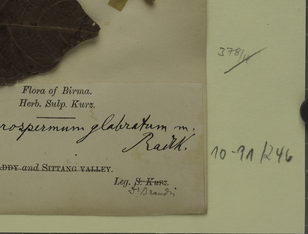 Flora of Birma.
Herb. Sulp. Kurz.
rospermum glabratum m.
Radlk.
ADDY and SITTANG VALLEY.
Leg. S. Kurz.
Dr Brandis
378/1
10-91/246